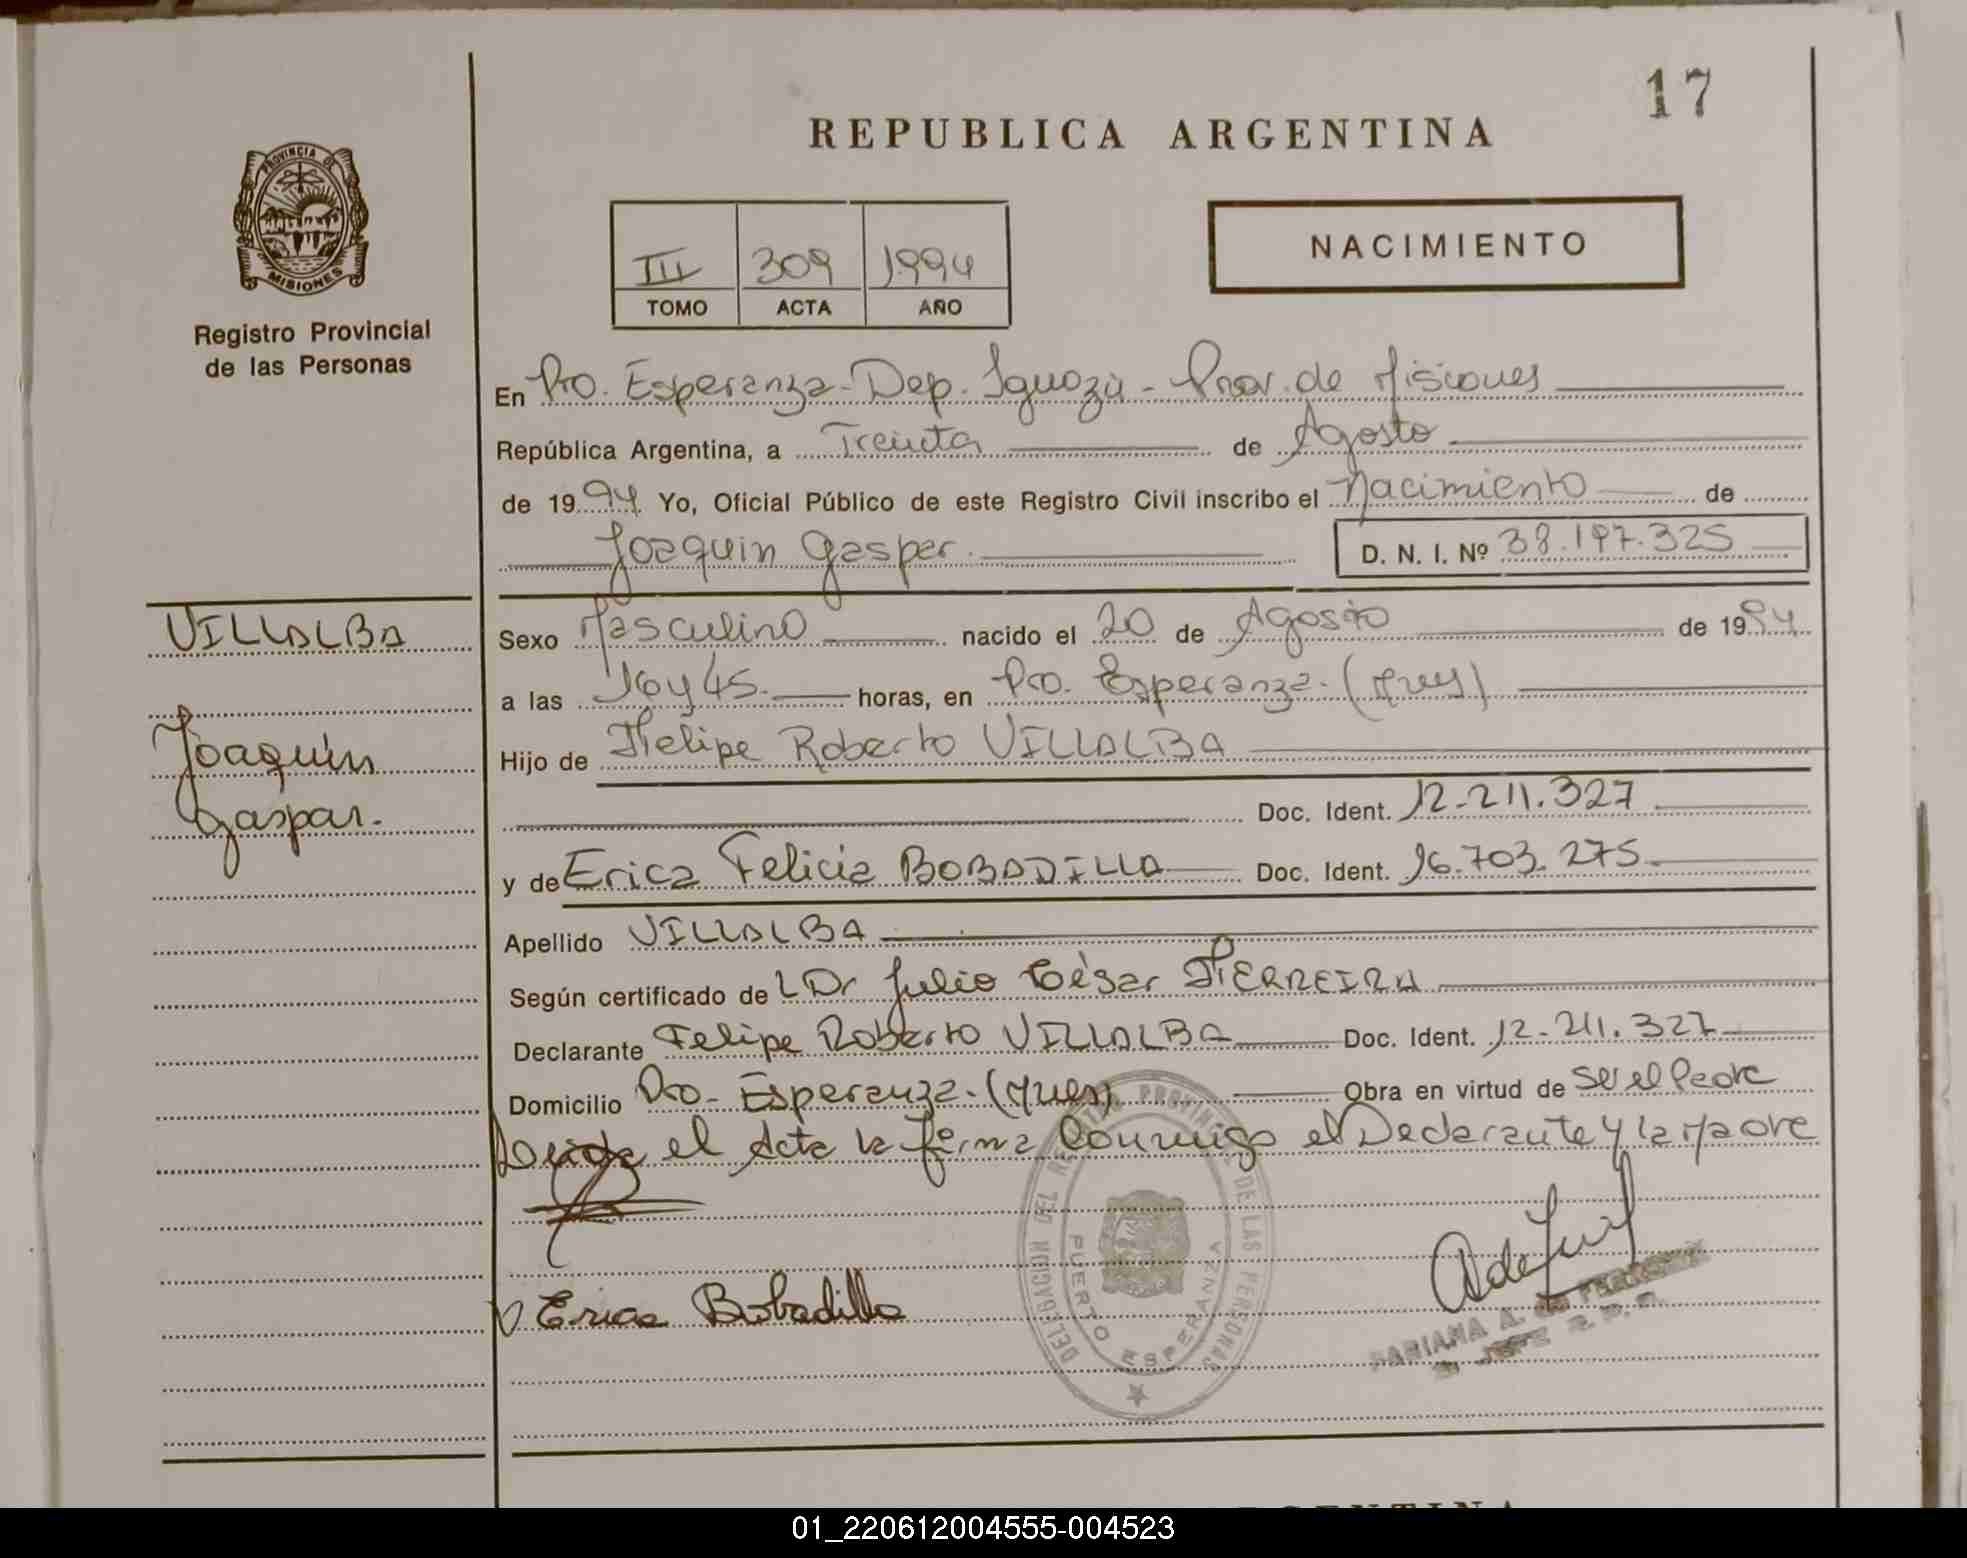 17
REPUBLICA ARGENTINA
PROVINCIA DE
MISIONES
Registro Provincial
de las Personas
III 309 1994
TOMO ACTA AÑO
NACIMIENTO
En Pto. Esperanza - Dep. Iguazú - Prov. de Misiones
República Argentina, a Treinta de Agosto
de 1994 Yo, Oficial Público de este Registro Civil inscribo el Nacimiento de
Joaquin Gaspar. D. N. I. Nº 38.197.325
VILLALBA
Joaquín
Gaspar.
Sexo Masculino nacido el 20 de Agosto de 1994
a las 16 y 45. horas, en Pto. Esperanza. (Mnes)
Hijo de Felipe Roberto VILLALBA
Doc. Ident. 12-211.327
y de Erica Felicia BOBADILLA Doc. Ident. 16.703.275.
Apellido VILLALBA
Según certificado de L Dr Julio César FERREIRA
Declarante Felipe Roberto VILLALBA Doc. Ident. 12-211.327
Domicilio Pto. Esperanza. (Mnes) Obra en virtud de ser el Padre
Leida el Acta la firma Conmigo el Declarante y la Madre
Erica Bobadilla
DELEGACION DEL REGISTRO PROVINCIAL DE LAS PERSONAS
PUERTO ESPERANZA
MARIANA A. de
JEFE R. P. P.
ARGENTINA
01_220612004555-004523